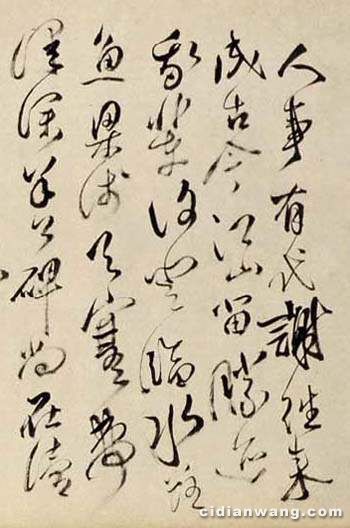 人事有代謝往来
成古今江山留勝迹
我輩復登臨水落
魚梁淺天寒夢
澤深羊公碑尚在讀
cidianwang.com